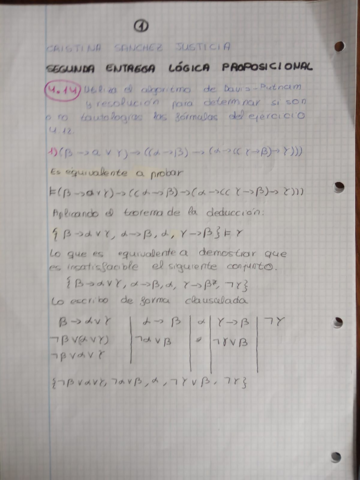 1
CRISTINA SANCHEZ JUSTICIA
SEGUNDA ENTREGA LÓGICA PROPOSICIONAL
4.14) Utiliza el algoritmo de Davis-Putnam
y resolución para determinar si son
o no tautologías las fórmulas del ejercicio
4.12
1) (β→α∨γ)→((α→β)→(α→((γ→β)→γ)))
Es equivalente a probar
⊨(β→α∨γ)→((α→β)→(α→((γ→β)→γ)))
Aplicando el teorema de la deducción:
{β→α∨γ, α→β, α, γ→β}⊨γ
Lo que es equivalente a demostrar que
es insatisfacible el siguiente conjunto.
{β→α∨γ, α→β, α, γ→β, ¬γ}
Lo escribo de forma clausulada
β→α∨γ | α→β | α | γ→β | ¬γ
¬β∨(α∨γ) | ¬α∨β | | ¬γ∨β |
¬β∨α∨γ
{¬β∨α∨γ, ¬α∨β, α, ¬γ∨β, ¬γ}